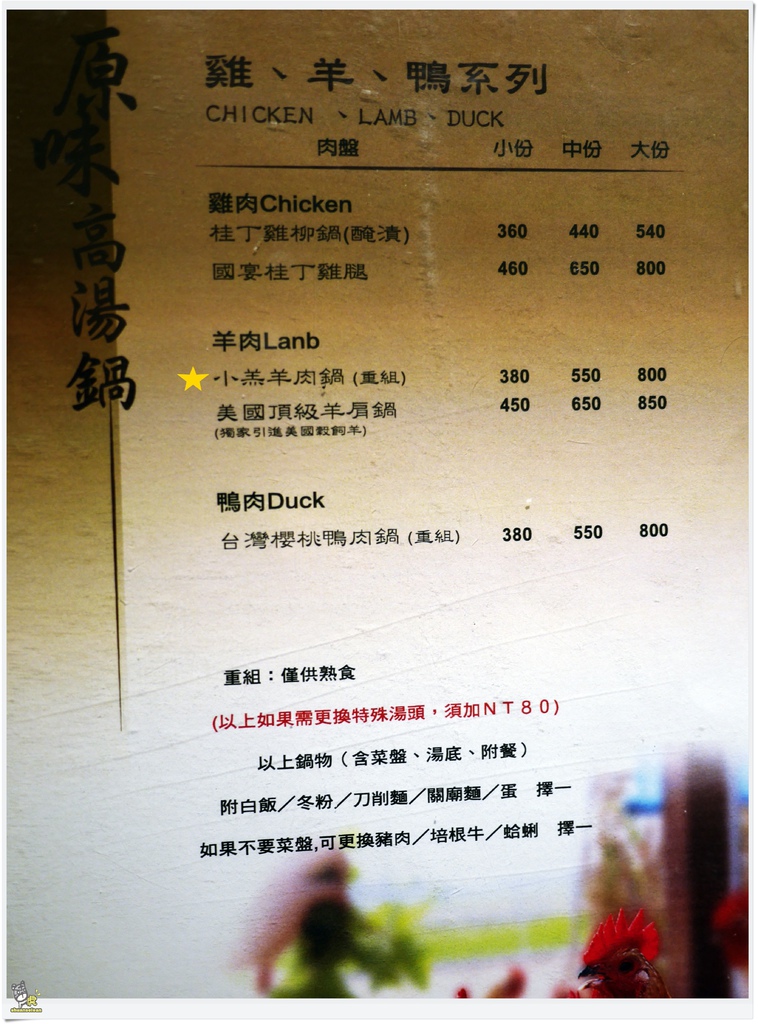 原味高湯鍋
雞、羊、鴨系列
CHICKEN 、LAMB、DUCK
肉盤 小份 中份 大份
雞肉Chicken
桂丁雞柳鍋(醃漬) 360 440 540
國宴桂丁雞腿 460 650 800
羊肉Lanb
小羔羊肉鍋 (重組) 380 550 800
美國頂級羊肩鍋 450 650 850
(獨家引進美國穀飼羊)
鴨肉Duck
台灣櫻桃鴨肉鍋 (重組) 380 550 800
重組：僅供熟食
(以上如果需更換特殊湯頭，須加NT80)
以上鍋物（含菜盤、湯底、附餐）
附白飯／冬粉／刀削麵／關廟麵／蛋 擇一
如果不要菜盤,可更換豬肉／培根牛／蛤蜊 擇一